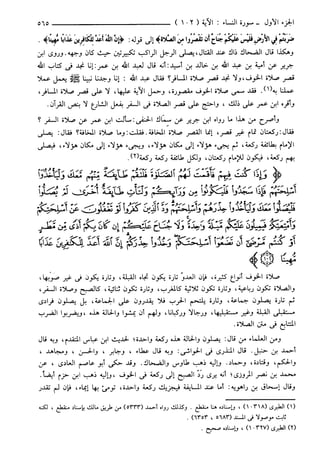 الجزء الأول - سورة النساء : الآية ( ١٠٢ )
٥١٥
ضربتم في الأرض فليس عليكم جناح أن تقصروا من الصلاة﴾ إلى قوله: ﴿إن الله أعد للكافرين عذابا مهينا﴾.
وهكذا قال الضحاك ذاك عند القتال، يصلي الرجل الراكب تكبيرتين حيث كان وجهه. وروى ابن
جرير عن أمية بن عبد الله بن خالد بن أسيد: أنه قال لعبد الله بن عمر: إنا نجد في كتاب الله
قصر صلاة الخوف، ولا نجد قصر صلاة المسافر؟ فقال عبد الله : إنا وجدنا نبينا ﷺ يعمل عملا
عملنا به(١). فقد سمى صلاة الخوف مقصورة، وحمل الآية عليها، لا على قصر صلاة المسافر،
وأقره ابن عمر على ذلك ، واحتج على قصر الصلاة في السفر بفعل الشارع لا بنص القرآن.
وأصرح من هذا ما رواه ابن جرير عن سماك الحنفي: سألت ابن عمر عن صلاة السفر ؟
فقال: ركعتان تمام غير قصر، إنما القصر صلاة المخافة. فقلت: وما صلاة المخافة؟ فقال: يصلي
الإمام بطائفة ركعة، ثم يجيء هؤلاء إلى مكان هؤلاء، ويجيء هؤلاء إلى مكان هؤلاء، فيصلي
بهم ركعة، فيكون للإمام ركعتان، ولكل طائفة ركعة ركعة(٢).
وإذا كنت فيهم فأقمت لهم الصلاة فلتقم طائفة منهم معك وليأخذوا
أسلحتهم فإذا سجدوا فليكونوا من ورائكم ولتأت طائفة أخرى لم يصلوا فليصلوا معك وليأخذوا حذرهم
وأسلحتهم ود الذين كفروا لو تغفلون عن أسلحتكم وأمتعتكم
فيميلون عليكم ميلة واحدة ولا جناح عليكم إن كان بكم أذى من مطر
أو كنتم مرضى أن تضعوا أسلحتكم وخذوا حذركم إن الله أعد للكافرين عذابا
مهينا
صلاة الخوف أنواع كثيرة، فإن العدو تارة يكون تجاه القبلة، وتارة يكون في غير صوبها،
والصلاة تكون رباعية، وتارة تكون ثلاثية كالمغرب، وتارة تكون ثنائية، كالصبح وصلاة السفر،
ثم تارة يصلون جماعة، وتارة يلتحم الحرب فلا يقدرون على الجماعة، بل يصلون فرادى
مستقبلي القبلة وغير مستقبليها، ورجالا وركبانا، ولهم أن يمشوا والحالة هذه ، ويضربوا الضرب
المتتابع في متن الصلاة.
ومن العلماء من قال: يصلون والحالة هذه ركعة واحدة؛ لحديث ابن عباس المتقدم، وبه قال
أحمد بن حنبل. قال المنذري في الحواشي: وبه قال عطاء ، وجابر ، والحسن ، ومجاهد ،
والحكم، وقتادة، وحماد، وإليه ذهب طاوس والضحاك. وقد حكى أبو عاصم العبادي ، عن
محمد بن نصر المروزي؛ أنه يرى رد الصبح إلى ركعة في الخوف ، وإليه ذهب ابن حزم أيضا.
وقال إسحاق بن راهويه: أما عند المسايفة فيجزيك ركعة واحدة، تومئ بها إيماء، فإن لم تقدر
(١) الطبري (١٠٣١٨) ، وإسناده هنا منقطع . وكذلك رواه أحمد (٥٣٣٣) من طريق مالك بإسناد منقطع ، لكنه
ثابت موصولا في المسند (٥٦٨٣ ، ٦٣٥٣) .
(٢) الطبري (١٠٣٢٧) ، وإسناده صحيح .